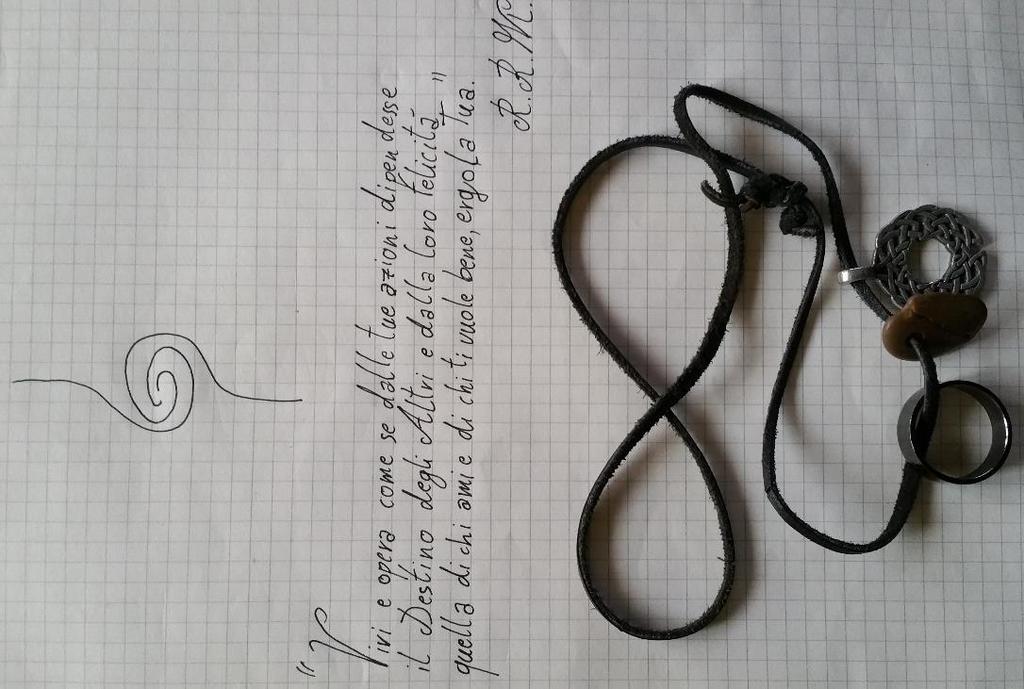 "Vivi e opera come se dalle tue azioni dipendesse
il Destino degli Altri e dalla loro felicità
quella di chi ami e di chi ti vuole bene, ergo la tua."
R. R. M.